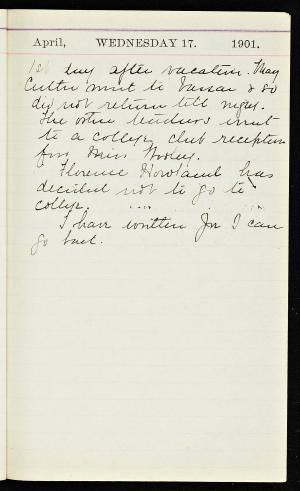 April, WEDNESDAY 17. 1901.
1st day after vacation. May
Cutler went to Vassar & so
did not return till night.
The other teachers went
to a college club reception
for Miss Wooley.
Florence Howland has
decided not to go to
college.
I have written Jn I can
go back.